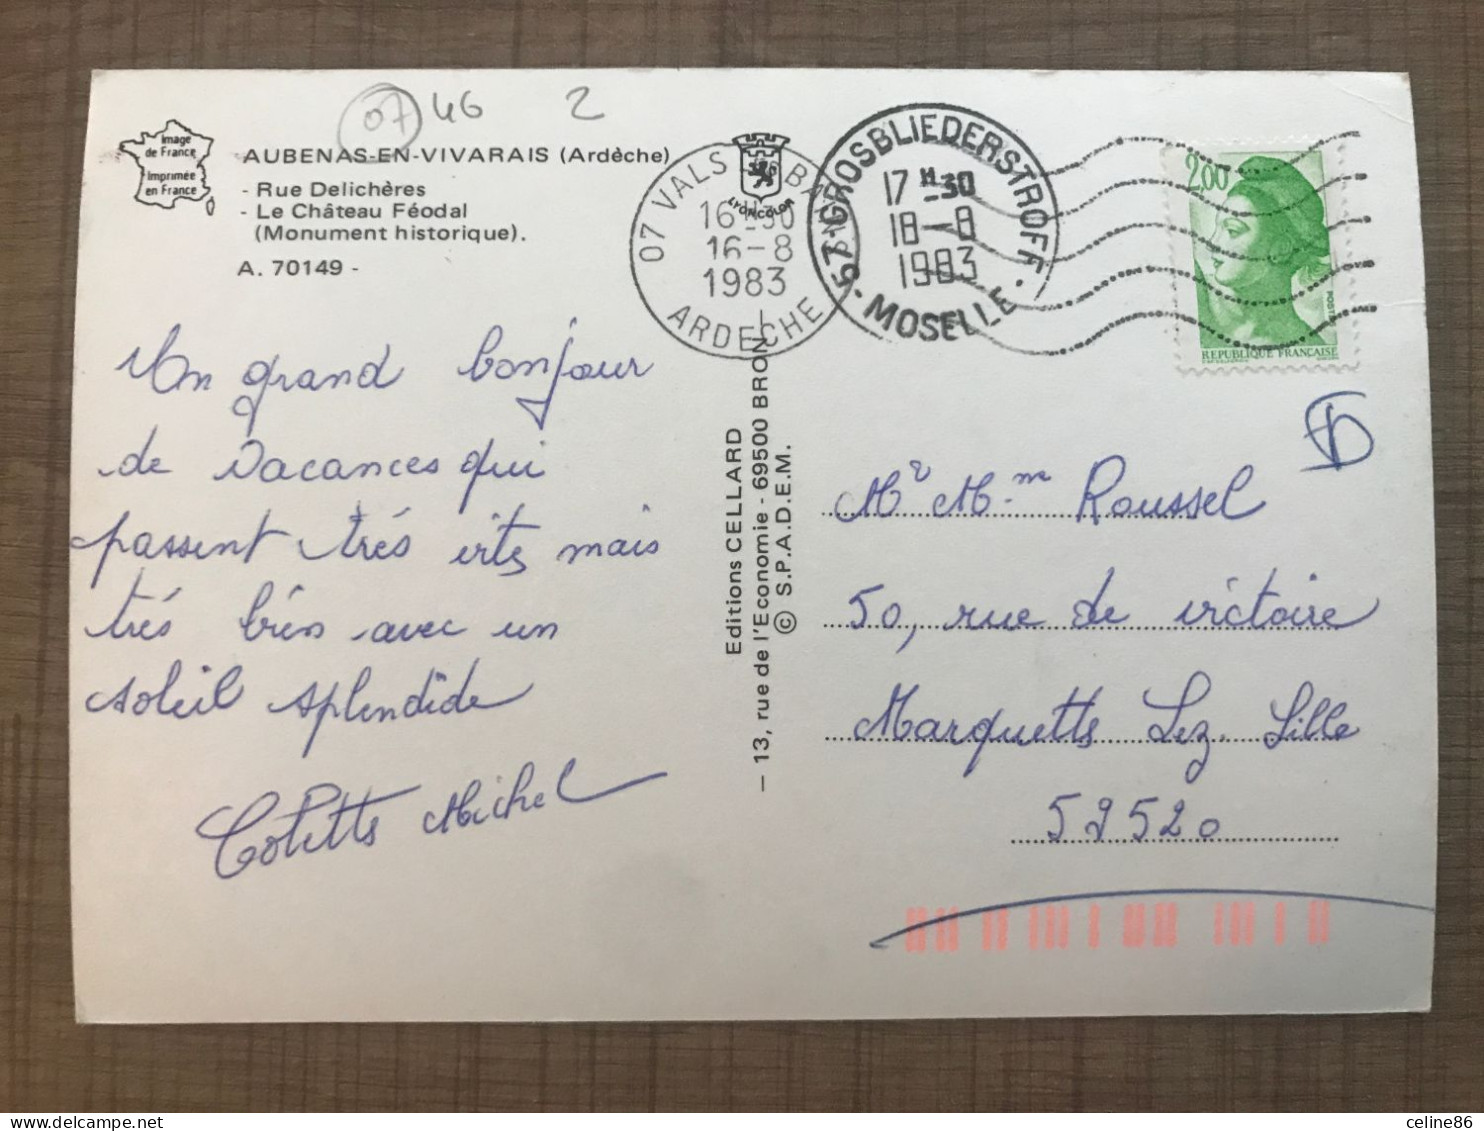 07 46 2
Image
de France
Imprimée
en France
AUBENAS-EN-VIVARAIS (Ardèche)
- Rue Delichères
- Le Château Féodal
(Monument historique).
A. 70149 -
Un grand bonjour
de vacances qui
passent très vite mais
très bien avec un
soleil splendide
Colette Michel
Editions CELLARD
— 13, rue de l'Economie - 69500 BRON
© S.P.A.D.E.M.
LYONCOLOR
07 VALS BAINS
16H30
16-8
1983
ARDECHE
57-GROSBLIEDERSTROFF
17H30
18-8
1983
MOSELLE
2,00
POSTES
REPUBLIQUE FRANÇAISE
Mr Mme Roussel
50, rue de victoire
Marquette Lez. Lille
59520
celine86